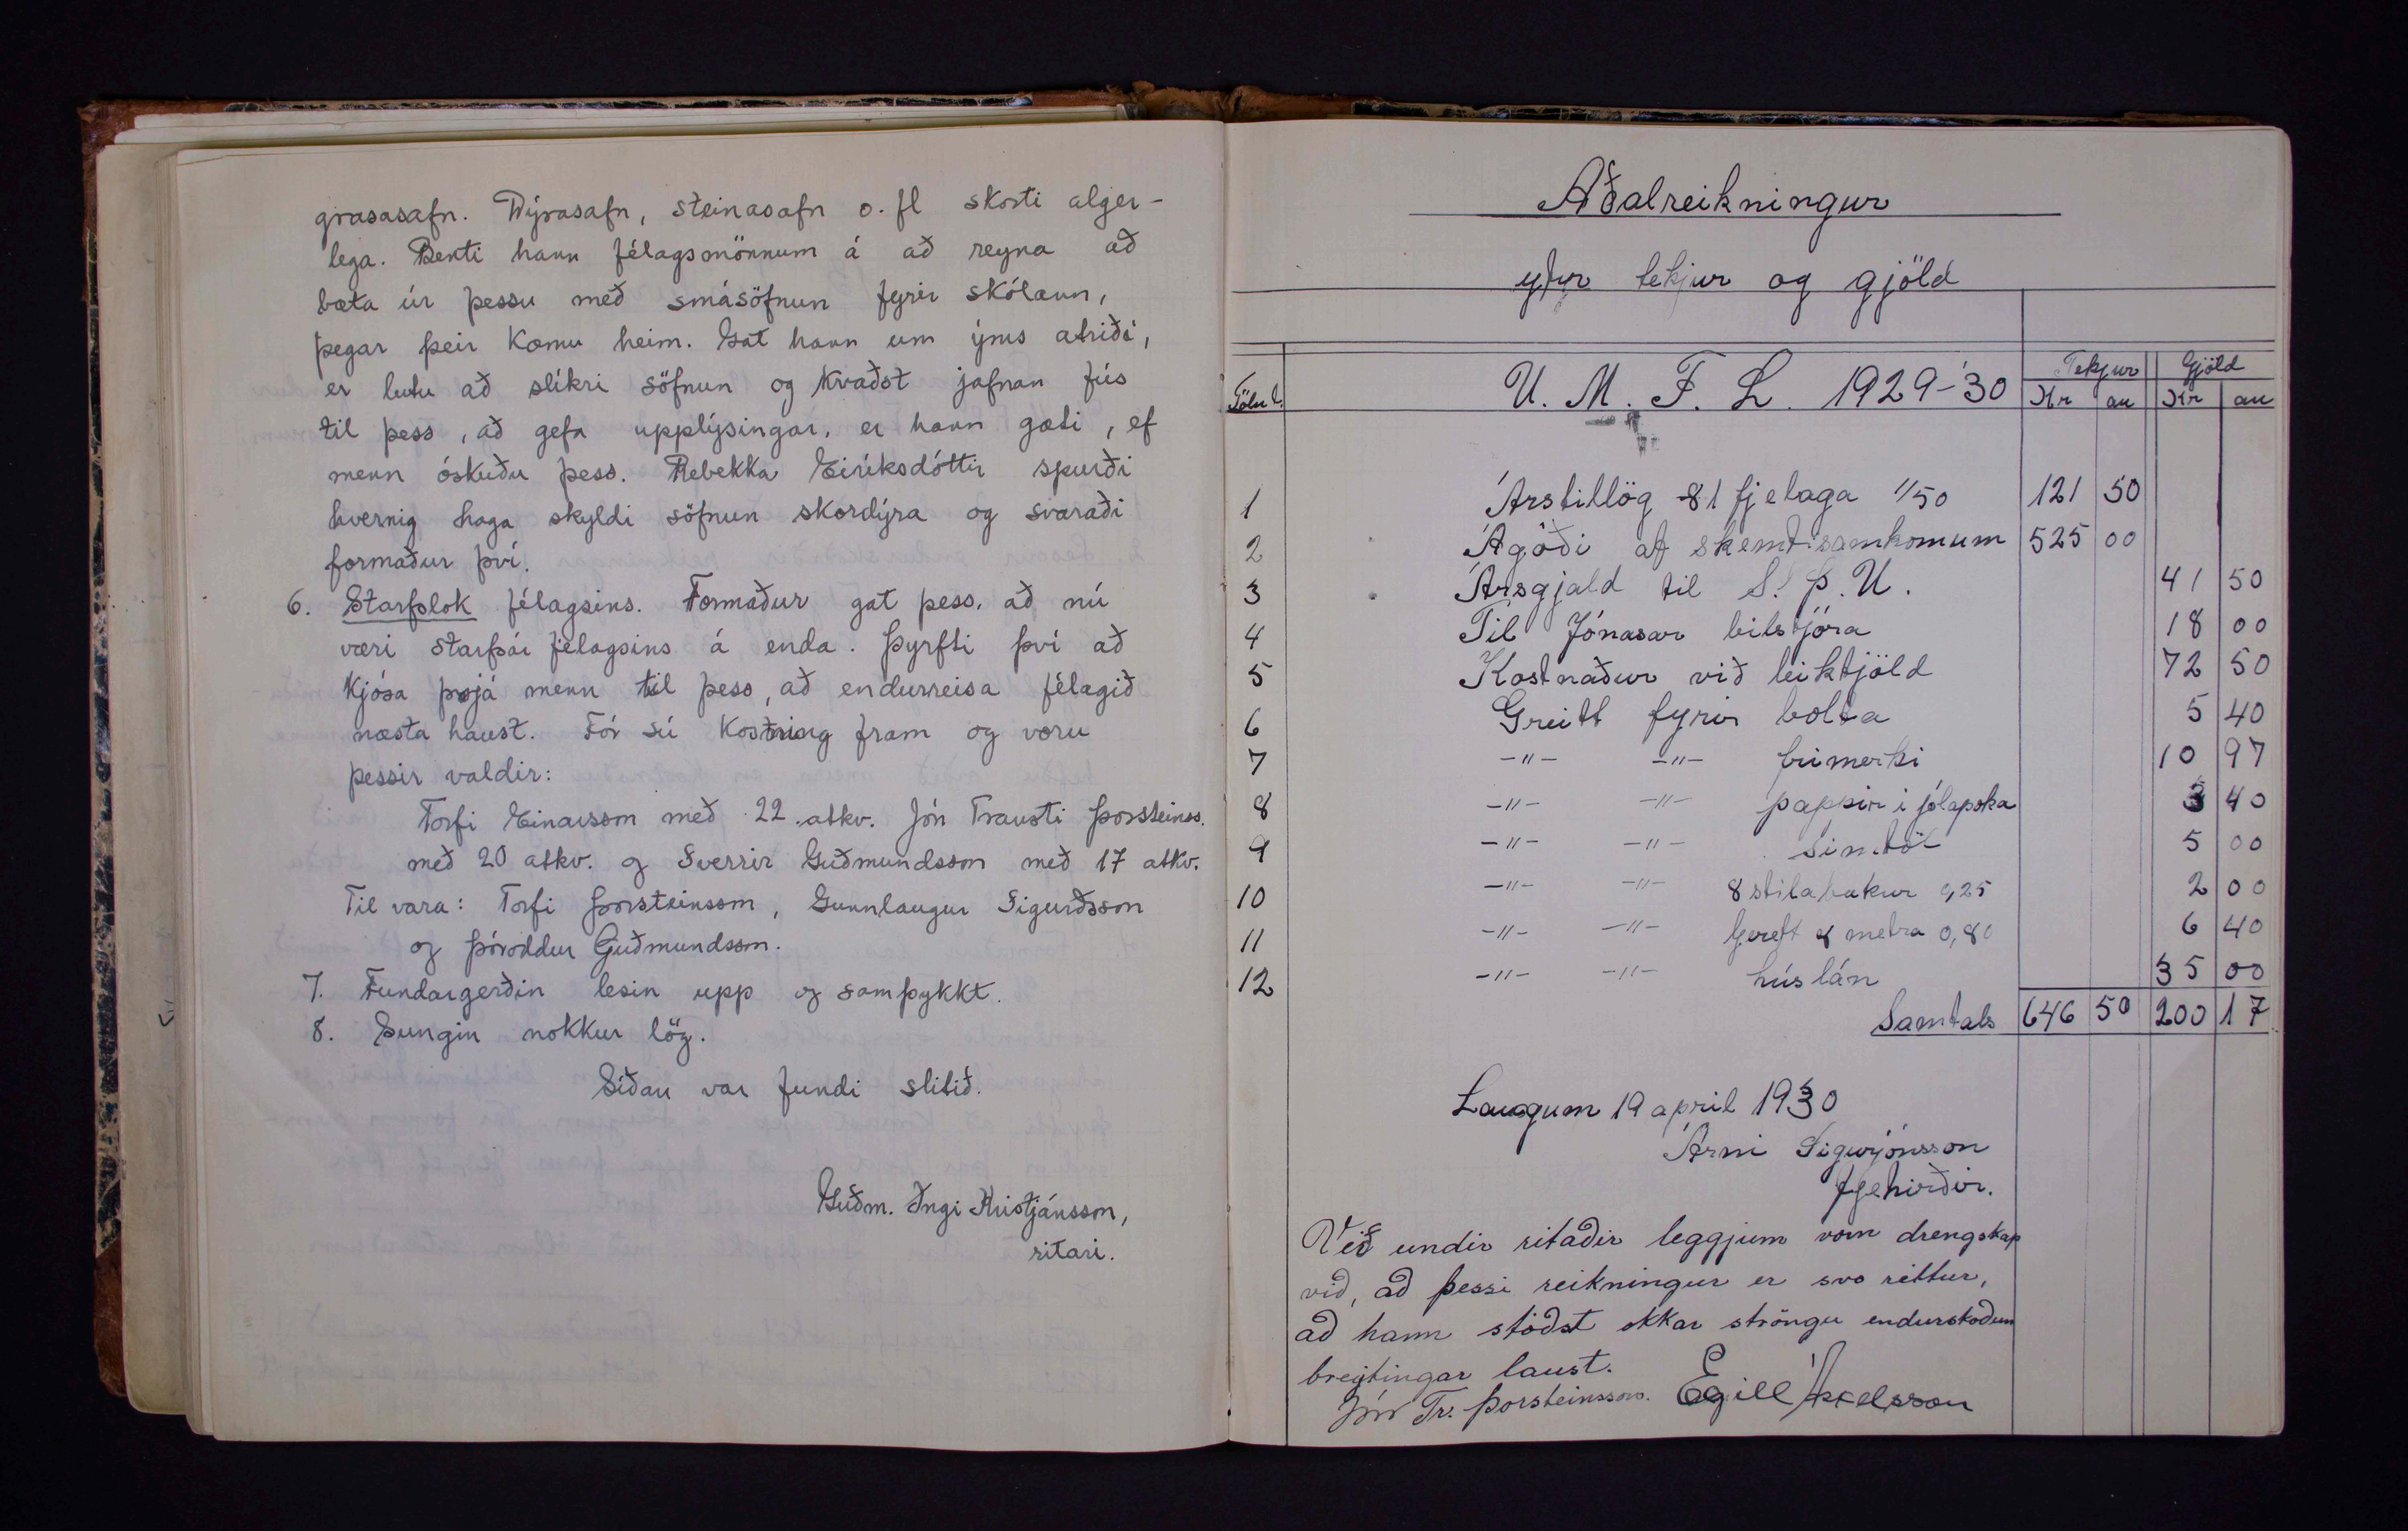 grasasafn. Dýrasafn, steinasafn o. fl skorti alger-
lega. Benti hann félagsmönnum á að reyna að
bæta úr þessu með smásöfnun fyrir skólann,
þegar þeir kæmu heim. Gat hann um ýms atriði,
er lutu að slíkri söfnun og kvaðst jafnan fús
til þess, að gefa upplýsingar, er hann gæti, ef
menn óskuðu þess. Rebekka Eiríksdóttir spurði
hvernig haga skyldi söfnun skordýra og svaraði
formaður því.
6. Starfslok félagsins. Formaður gat þess, að nú
væri starfsár félagsins á enda. Þyrfti því að
kjósa þrjá menn til þess, að endurreisa félagið
næsta haust. Fór sú kosning fram og voru
þessir valdir:
Torfi Einarsson með 22 atkv. Jón Trausti Þorsteinss.
með 20 atkv. og Sverrir Guðmundsson með 17 atkv.
Til vara: Torfi Þorsteinsson, Gunnlaugur Sigurðsson
og Þóroddur Guðmundsson.
7. Fundargerðin lesin upp og samþykkt.
8. Sungin nokkur lög.
Síðan var fundi slitið.
Guðm. Ingi Kristjánsson,
ritari.
Aðalreikningur
yfir tekjur og gjöld
Tölul. U. M. F. L. 1929-'30 Tekjur Gjöld
Kr au Kr au
1 Árstillög 81 fjelaga 1/50 121 50
2 Ágóði af skemtisamkomum 525 00
3 Ársgjald til S. Þ. U. 41 50
4 Til Jónasar bílstjóra 18 00
5 Kostnaður við leiktjöld 72 50
6 Greitt fyrir bolta 5 40
7 -"- -"- frímerki 10 97
8 -"- -"- pappír í jólapoka 3 40
9 -"- -"- símtöl 5 00
10 -"- -"- 8 stílabækur 0,25 2 00
11 -"- -"- Gereft 8 metra 0,80 6 40
12 -"- -"- húslán 35 00
Samtals 646 50 200 17
Laugum 19 april 1930
Árni Sigurjónsson
fjehirðir.
Við undir ritaðir leggjum vorn drengskap
við, að þessi reikningur er svo rjettur,
að hann stóðst okkar ströngu endurskoðun
breytingar laust.
Jón Tr. Þorsteinsson. Egill Áskelsson